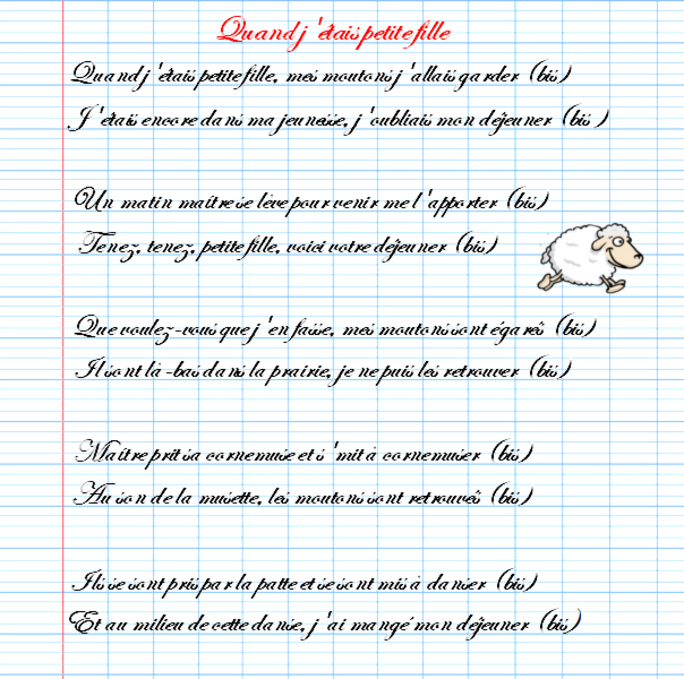 Quand j'étais petite fille
Quand j'étais petite fille, mes moutons j'allais garder (bis)
J'étais encore dans ma jeunesse, j'oubliais mon déjeuner (bis)
Un matin maître se lève pour venir me l'apporter (bis)
Tenez, tenez, petite fille, voici votre déjeuner (bis)
Que voulez-vous que j'en fasse, mes moutons sont égarés (bis)
Il sont là-bas dans la prairie, je ne puis les retrouver (bis)
Maître prit sa cornemuse et s'mit à cornemuser (bis)
Au son de la musette, les moutons sont retrouvés (bis)
Ils se sont pris par la patte et se sont mis à danser (bis)
Et au milieu de cette danse, j'ai mangé mon déjeuner (bis)